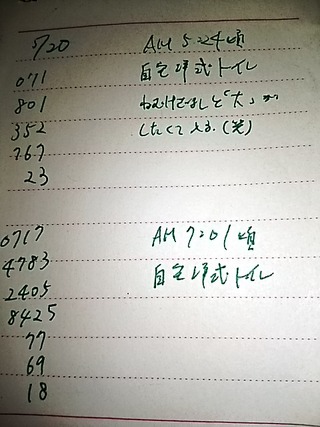 5/20 AM 5:24頃
071 自宅洋式トイレ
801 ねむけざましと"大"が
352 したくてえる。(笑)
767
23
0717 AM 7:01頃
4783 自宅洋式トイレ
2405
8425
77
69
18